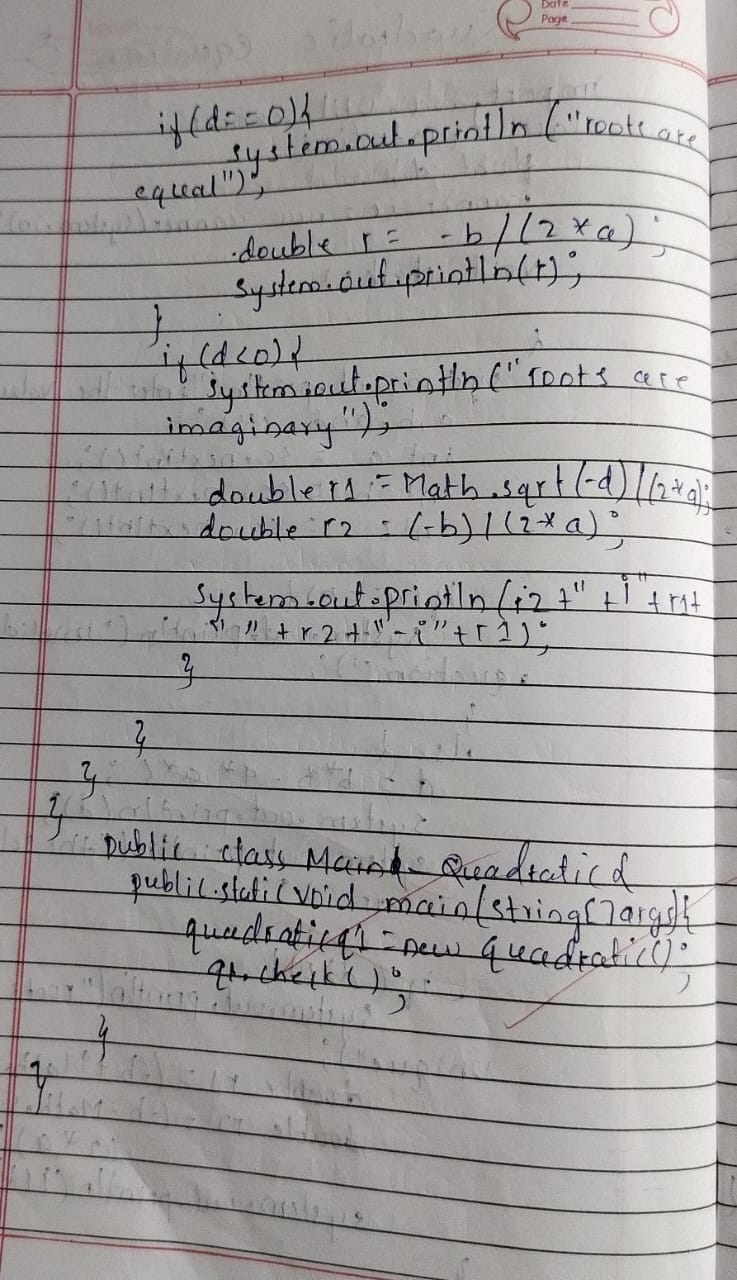 Date
Page
if(d==0){
system.out.println("roots are
equal");
double r = -b/(2*a);
System.out.println(r);
}
if(d<0){
System.out.println("roots are
imaginary");
double r1 = Math.sqrt(-d)/(2*a);
double r2 = (-b)/(2*a);
System.out.println(r2+"+i"+r1+
" "+r2+"-i"+r1);
}
}
}
}
public class Main Quadratic{
public static void main(string[]args){
quadratic q1=new quadratic();
q1.check();
}
}